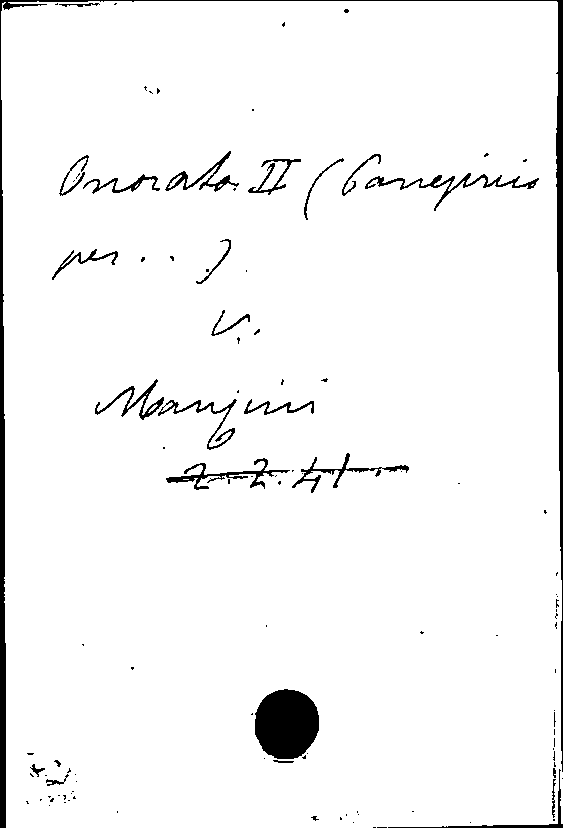 Onorato II (Panegirico
per . . )
V.
Mangini
2. 2. 41.